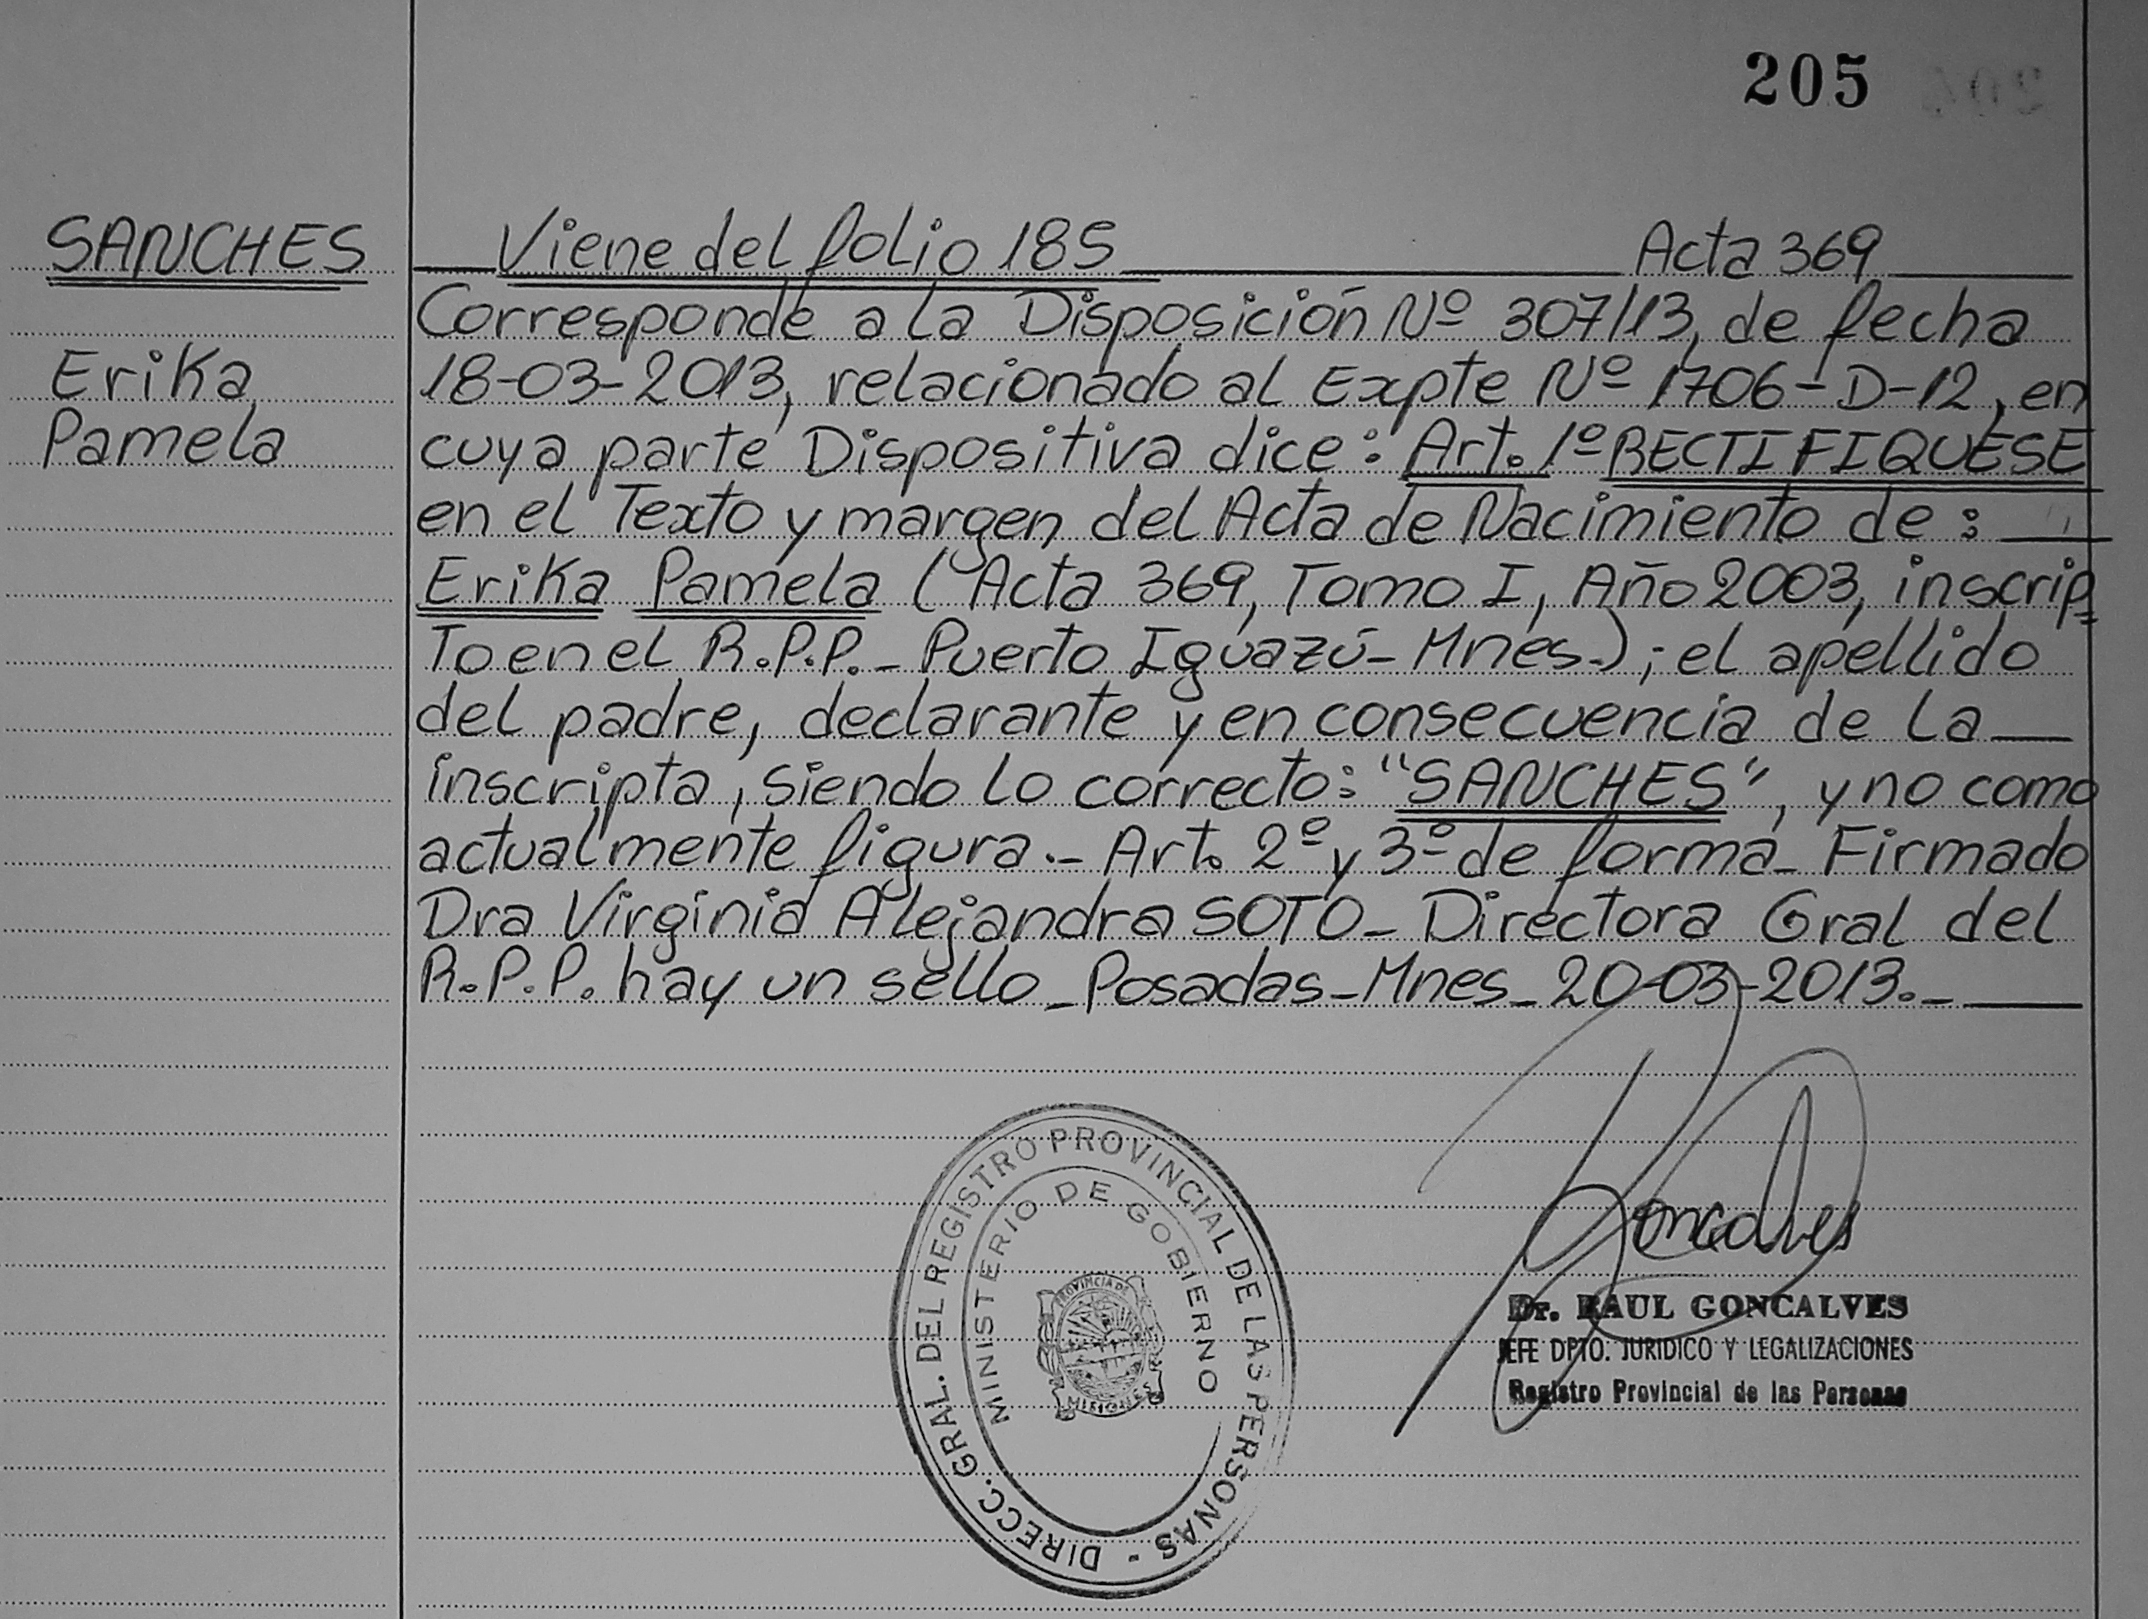 205
SANCHES
Erika
Pamela
Viene del folio 185 Acta 369
Corresponde a la Disposición Nº 307/13, de fecha
18-03-2013, relacionado al Expte Nº 1706-D-12, en
cuya parte Dispositiva dice: Art. 1º RECTIFIQUESE
en el Texto y margen del Acta de Nacimiento de:
Erika Pamela (Acta 369, Tomo I, Año 2003, inscrip
to en el R.P.P.- Puerto Iguazú- Mnes.); el apellido
del padre, declarante y en consecuencia de la
inscripta, siendo lo correcto: "SANCHES", y no como
actualmente figura.- Art. 2º y 3º de forma- Firmado
Dra Virginia Alejandra SOTO- Directora Gral del
R.P.P. hay un sello- Posadas-Mnes- 20-03-2013.-
DIRECC. GRAL. DEL REGISTRO PROVINCIAL DE LAS PERSONAS -
MINISTERIO DE GOBIERNO
PROVINCIA DE
MISIONES
Goncalves
Dr. RAUL GONCALVES
JEFE DPTO. JURIDICO Y LEGALIZACIONES
Registro Provincial de las Personas